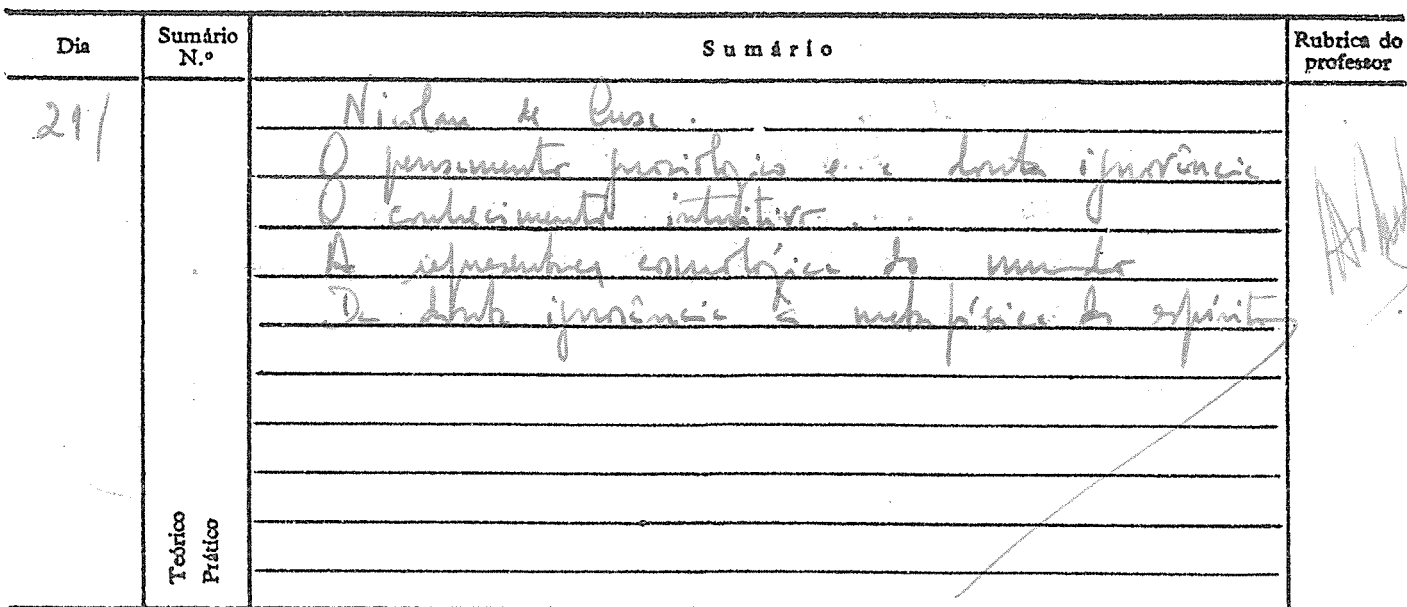 Dia Sumário N.º Sumário Rubrica do professor
21/
Nicolau de Cusa.
O pensamento gnosiológico e a douta ignorância
O conhecimento intuitivo.
A representação cosmológica do mundo
Da douta ignorância à metafísica do espírito
Teórico
Prático